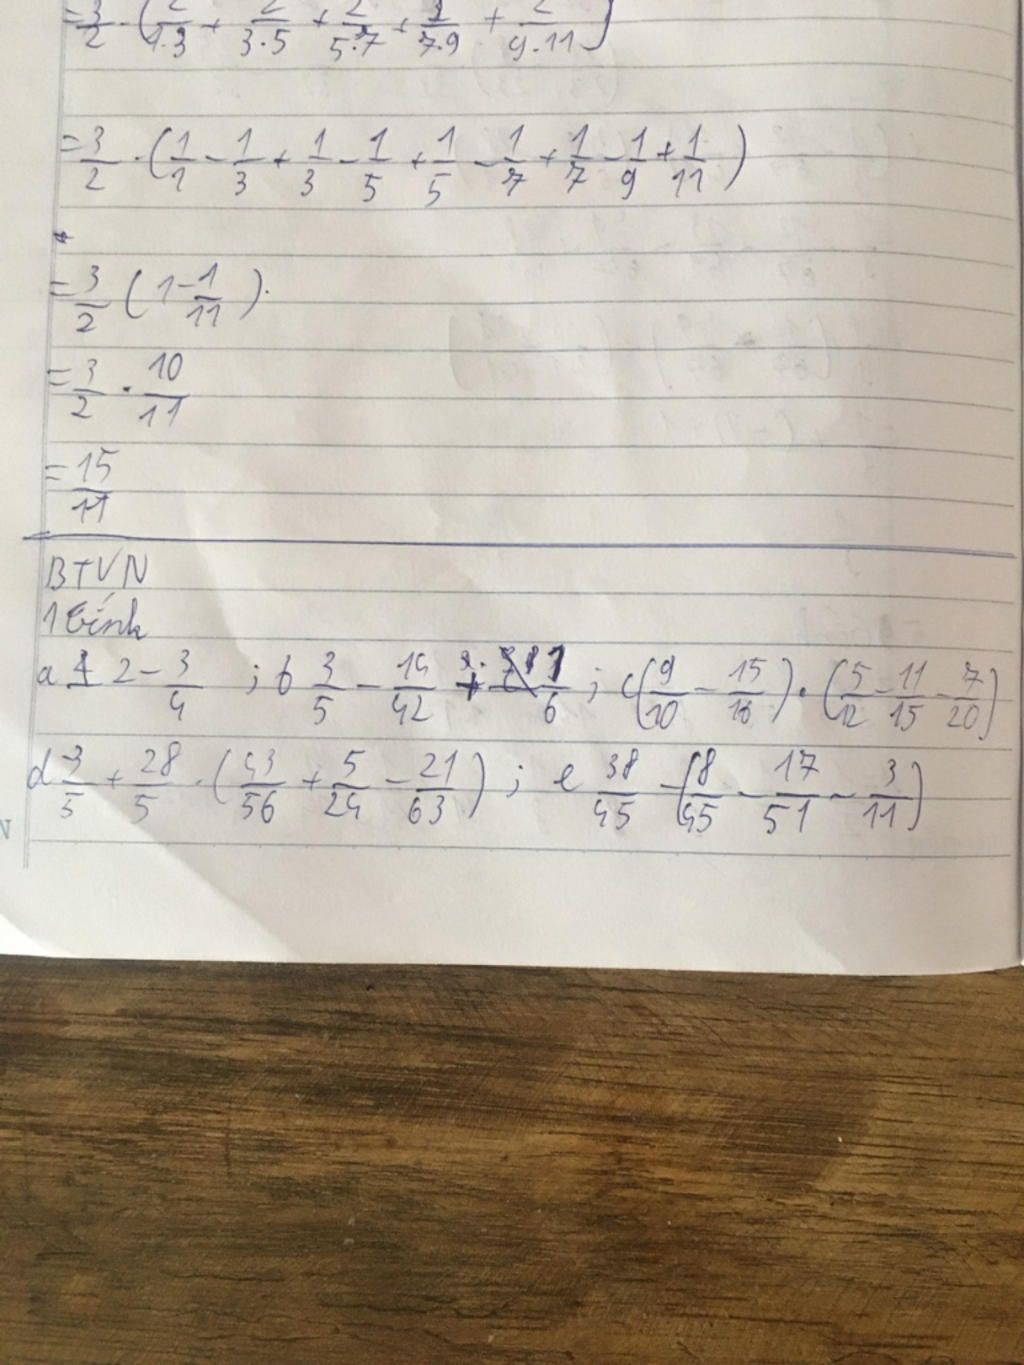 = 3/2 · (2/1.3 + 2/3.5 + 2/5.7 + 2/7.9 + 2/9.11)
= 3/2 · (1/1 - 1/3 + 1/3 - 1/5 + 1/5 - 1/7 + 1/7 - 1/9 + 1/11)
= 3/2 (1 - 1/11).
= 3/2 · 10/11
= 15/11
BTVN
1 tính
a 2 - 3/4 ; b 3/5 - 14/42 + 1/6 ; c (9/10 - 15/16) · (5/12 - 11/15 - 7/20)
d -3/5 + 28/5 · (43/56 + 5/24 - 21/63) ; e 38/45 - (8/45 - 17/51 - 3/11)
N